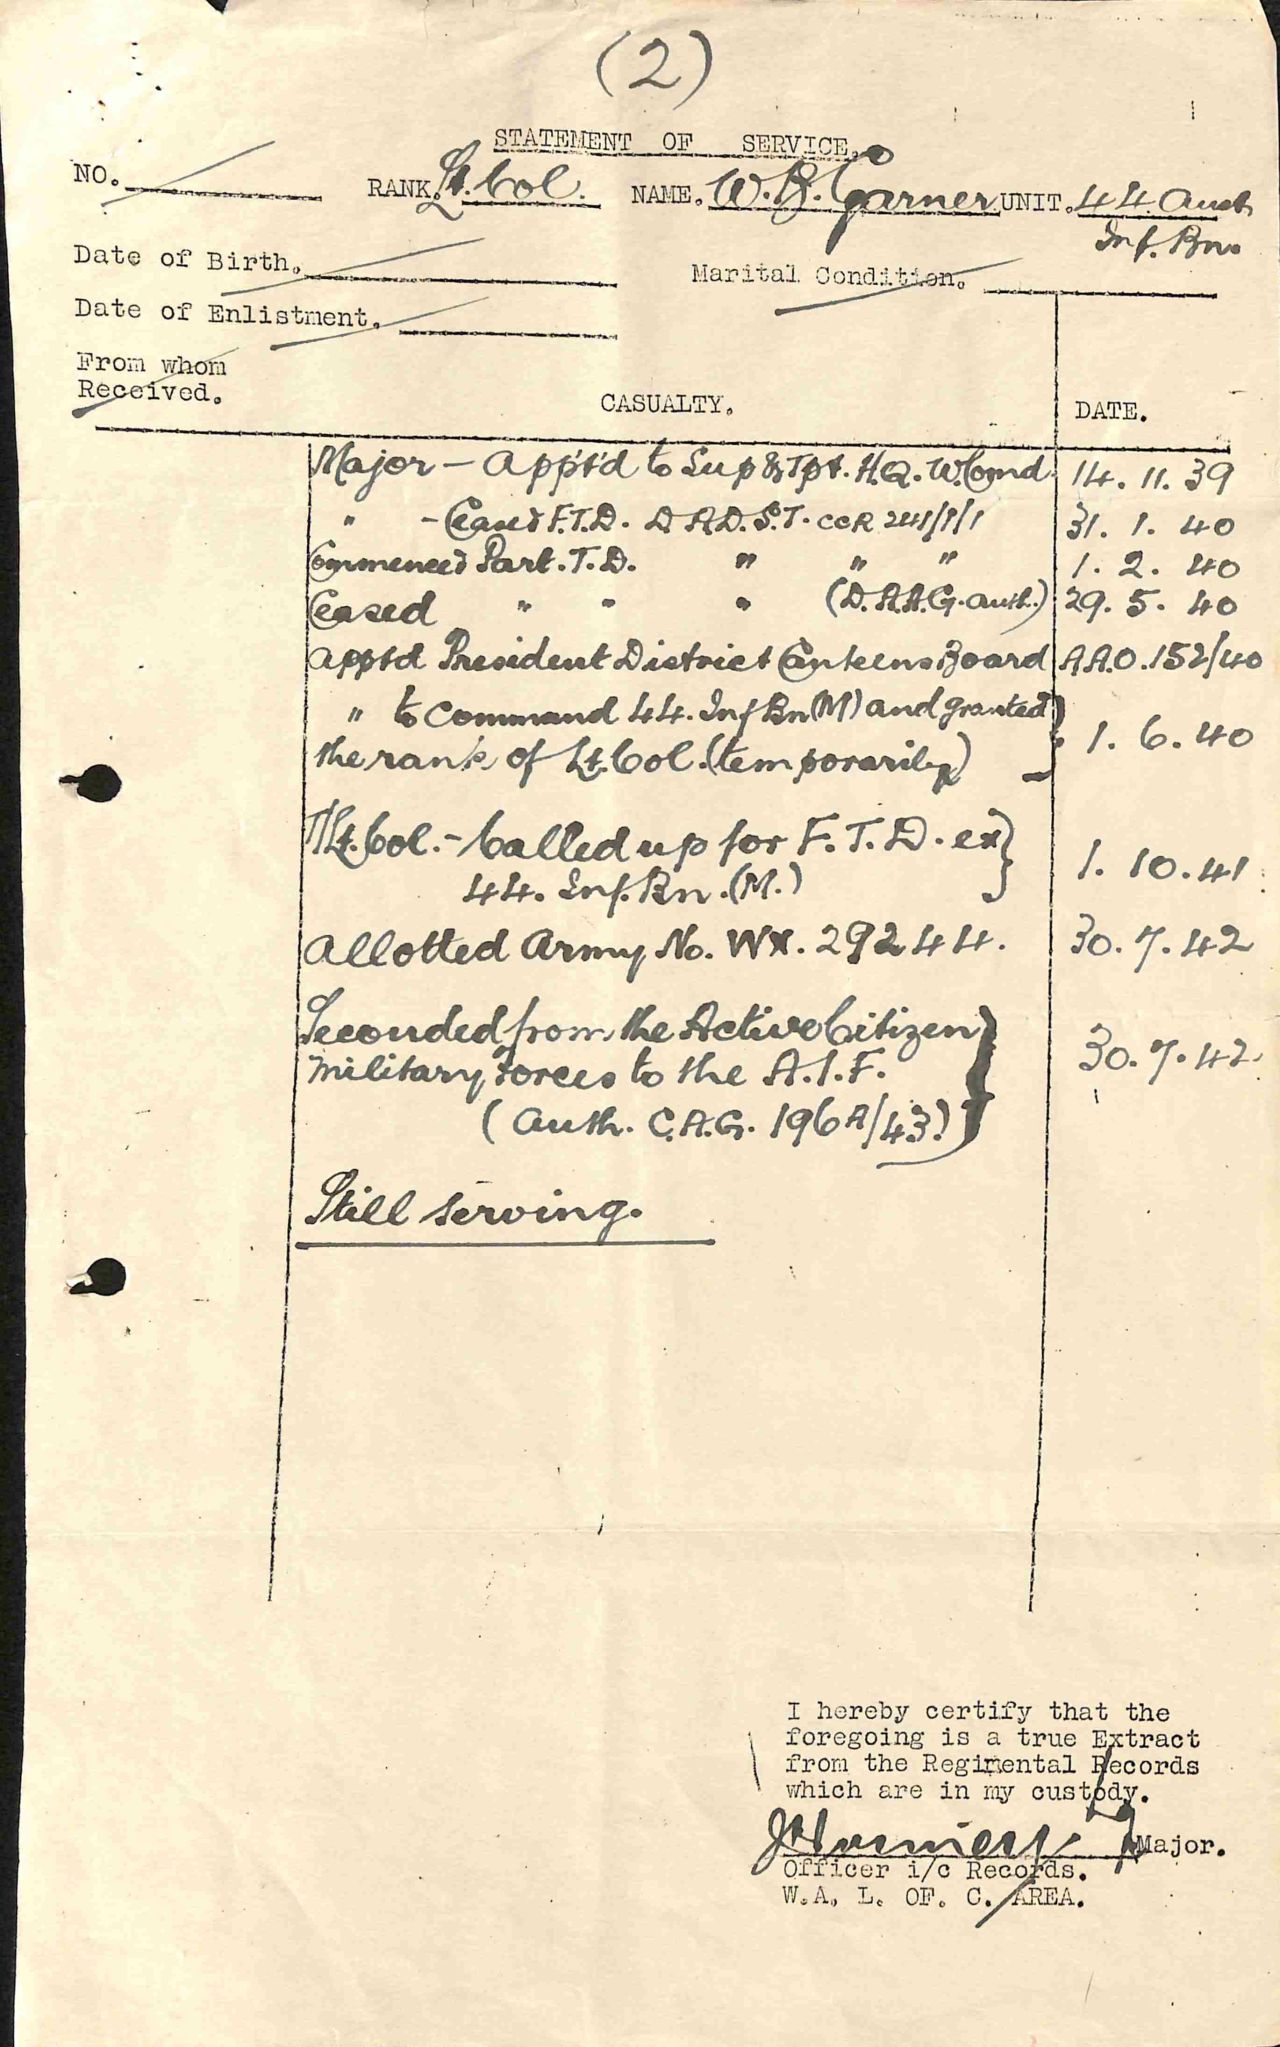 (2)
STATEMENT OF SERVICE.
NO. RANK. Lt. Col. NAME. W. B. Garner UNIT. 44 Aust
Inf. Bn.
Date of Birth.
Marital Condition.
Date of Enlistment.
From whom
Received.
CASUALTY. DATE.
Major - App't'd to Sup & Tpt. H.Q. W. Comd 14. 11. 39
" - Ceased F.T.D. D.A.D.S.T. CCR 241/1/1 31. 1. 40
Commenced Part. T. D. " " " 1. 2. 40
Ceased " " " (D.A.A.G. auth.) 29. 5. 40
appt'd President District Canteens Board A.A.O. 152/40
" to command 44. Inf Bn (M) and granted
the rank of Lt. Col. (temporarily) 1. 6. 40
T/Lt. Col. - Called up for F. T. D. ex
44. Inf. Bn. (M.) 1. 10. 41
Allotted Army No. WX. 29244. 30. 7. 42
Seconded from the Active Citizen
Military Forces to the A.I.F. 30. 7. 42.
(Auth. C.A.G. 196A/43.)
Still serving.
I hereby certify that the
foregoing is a true Extract
from the Regimental Records
which are in my custody.
Major.
Officer i/c Records.
W.A. L. OF. C. AREA.